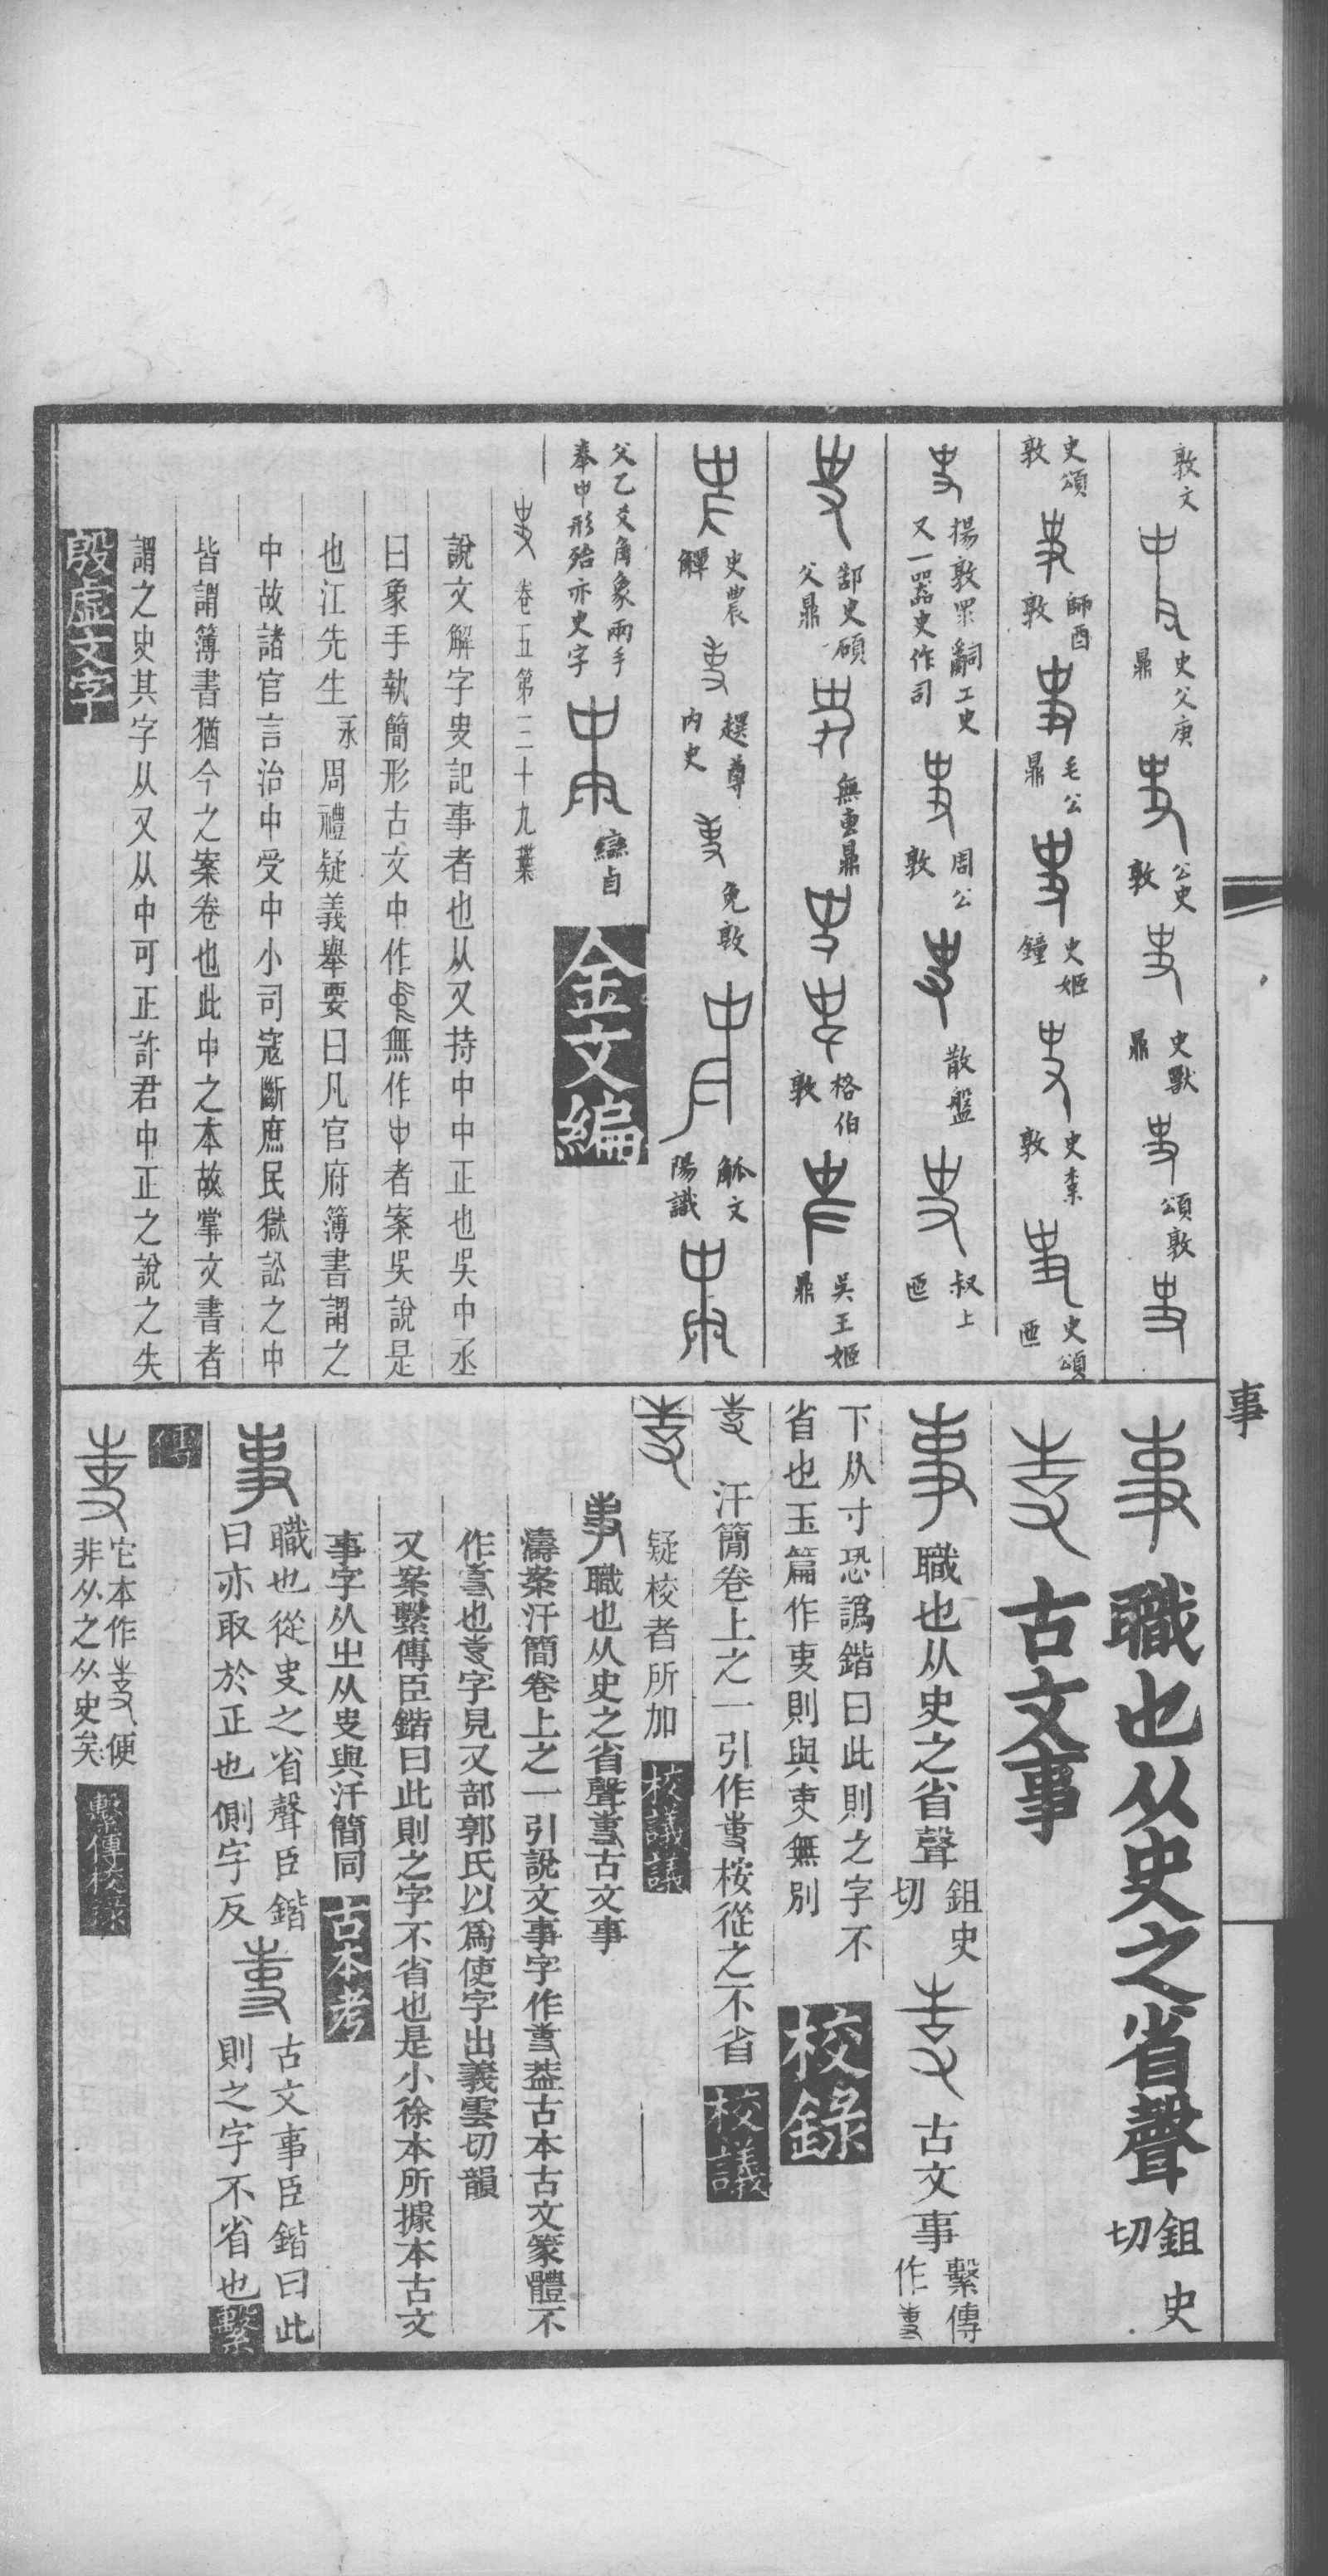 敦文
史父庚鼎
公史敦
史獸鼎
頌敦
史頌敦
師酉敦
毛公鼎
史姬鐘
史頌匜
揚敦眔嗣工史又一器史作司
周公敦
散盤
叔上匜
郜史碩父鼎
無叀鼎
格伯敦
吳王姬鼎
史農觶
趩尊內史
免敦
觚文陽識
父乙爻角象兩手奉中形殆亦史字
金文編
卷五第三十九葉
說文解字㕜記事者也从又持中中正也吳中丞
曰象手執簡形古文中作
無作
者案吳說是
也江先生永周禮疑義舉要曰凡官府簿書謂之
中故諸官言治中受中小司寇斷庶民獄訟之中
皆謂簿書猶今之案卷也此中之本故掌文書者
謂之史其字从又从中可正許君中正之說之失
殷虛文字
事
事
職也从史之省聲鉏史切
古文事
事
職也从史之省聲鉏史切
古文事繫傳作
下从寸恐譌鍇曰此則之字不
省也玉篇作叓則與吏無別
校錄
汗簡卷上之一引作
桉從之不省
校議
疑校者所加
校議議
職也从史之省聲
古文事
濤案汗簡卷上之一引說文事字作
葢古本古文篆體不
作
也
字見又部郭氏以爲使字出義雲切韻
又案繫傳臣鍇曰此則之字不省也是小徐本所據本古文
事字从㞢从㕜與汗簡同
古本考
事
職也從㕜之省聲臣鍇
曰亦取於正也側字反
古文事臣鍇曰此
則之字不省也
繫
傳
它本作
便
非从之从史矣
繫傳校錄